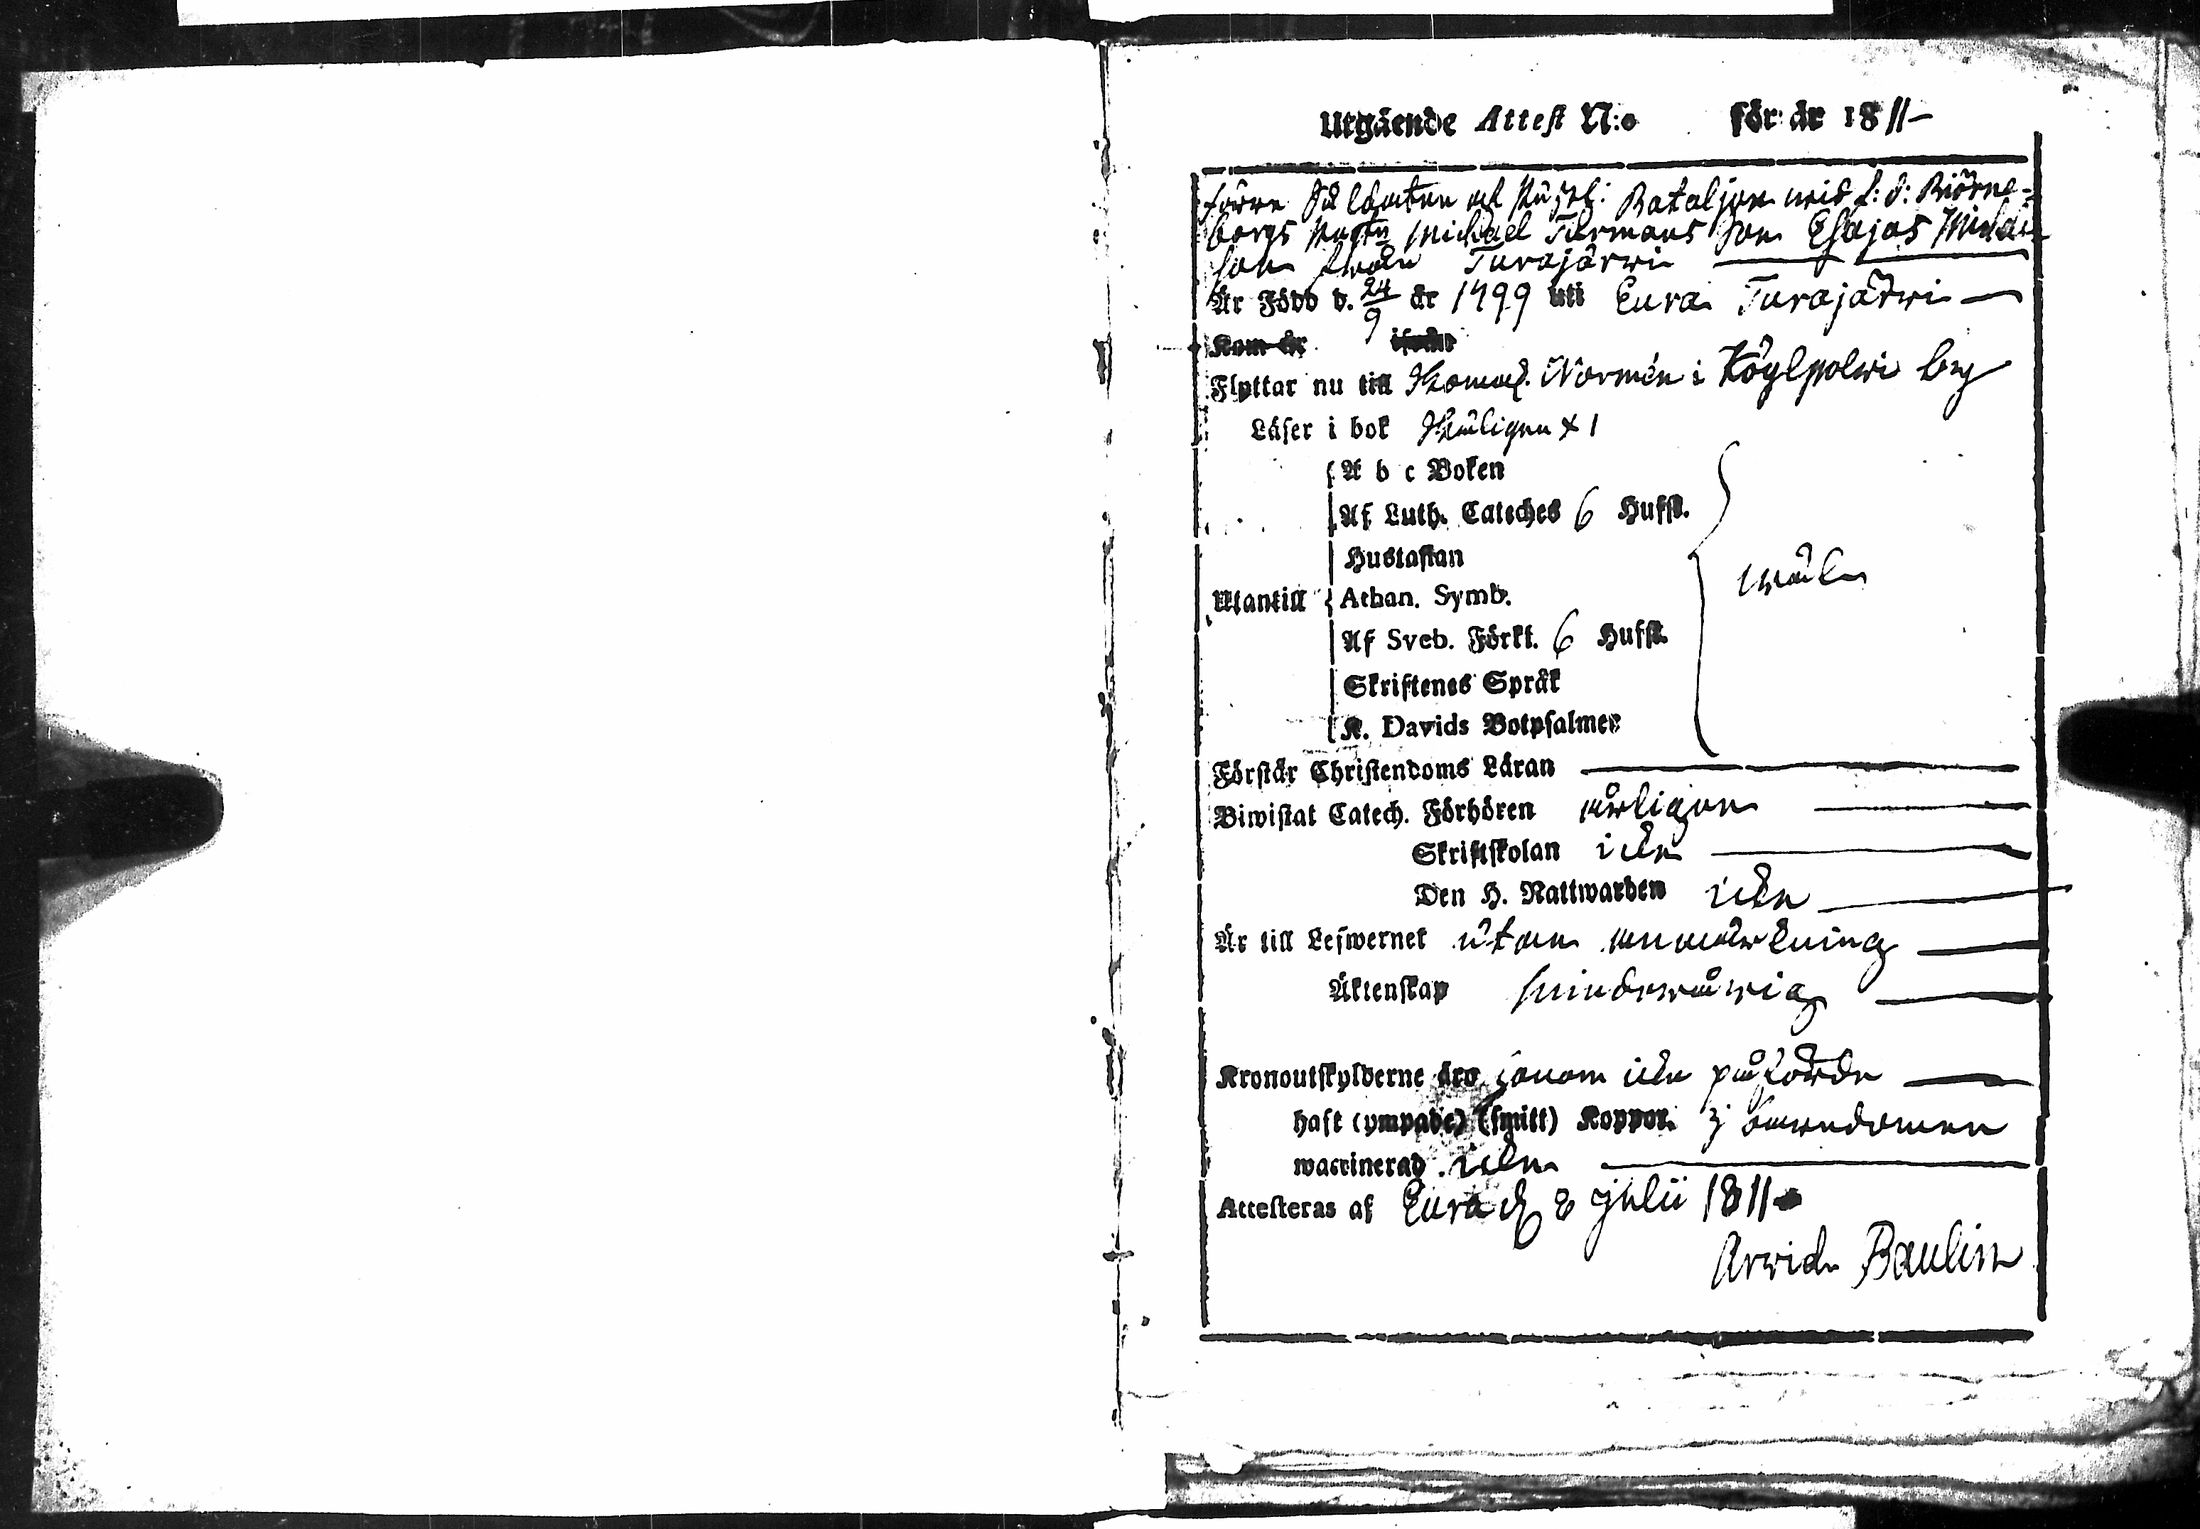 Utgående Attest N:o för år 1811
förre Soldaten af Bataljon wid f: d: Biörne-
borgs Michael Turmans Son Esajas Michels
son ifrån Turajärwi
Är Född d. 24/9 år 1799 uti Eura Turajärwi
Kom år ifrån
Flyttar nu till Thomas Normén i Köylpolwi by
Läser i bok x 1
A b c Boken
Af Luth. Cateches 6 Hufst.
Hustaflan
wäl
Utantill Athan. Symb.
Af Sveb. Förkl. 6 Hufst.
Skriftenes Språk
K. Davids Botpsalmer
Förstår Christendoms Läran
Biwistat Catech. Förhören årligen
Skriftskolan icke
Den H. Nattwarden icke
Är till Lefwernet utan anmärkning
Äktenskap minderårig
Kronoutskylderne äro honom icke påförde
haft (ympade) (smitt) Koppor i barndomen
waccinerad icke
Attesteras af Eura d 8 Julii 1811
Arwid Paulin